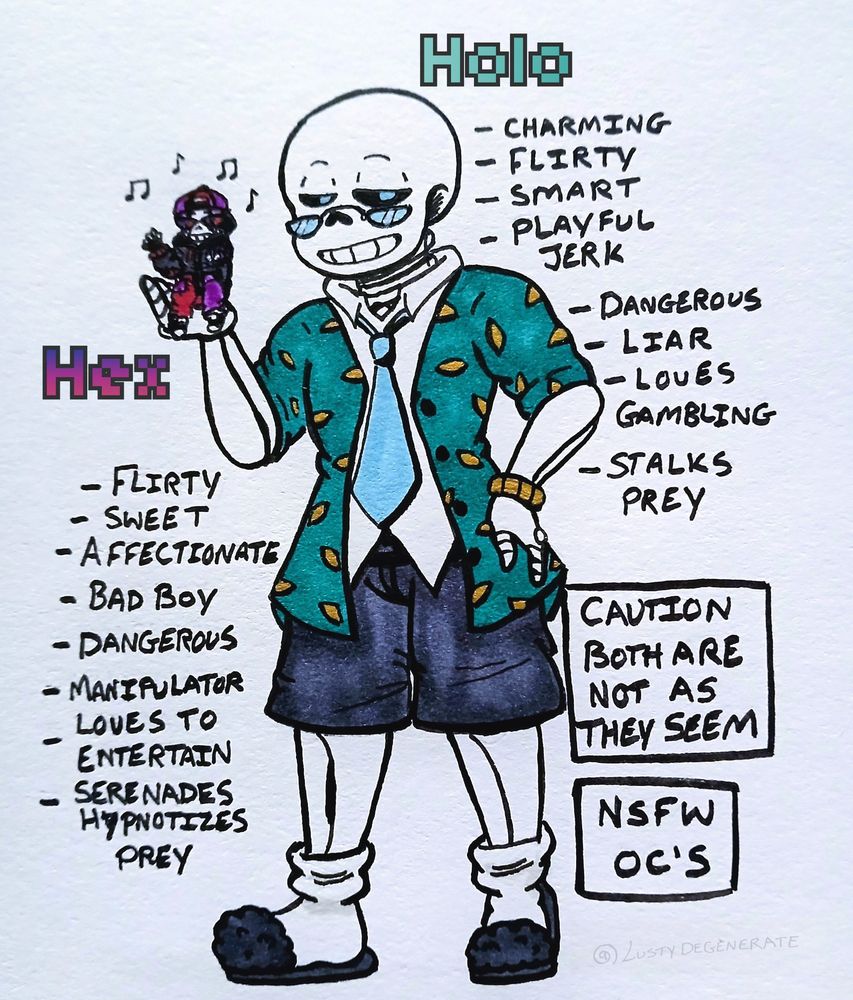 Holo
- CHARMING
- FLIRTY
- SMART
- PLAYFUL
JERK
- DANGEROUS
- LIAR
- LOVES
GAMBLING
- STALKS
PREY
Hex
- FLIRTY
- SWEET
- AFFECTIONATE
- BAD BOY
- DANGEROUS
- MANIPULATOR
- LOVES TO
ENTERTAIN
- SERENADES
HYPNOTIZES
PREY
CAUTION
BOTH ARE
NOT AS
THEY SEEM
NSFW
OC'S
@LUSTYDEGENERATE